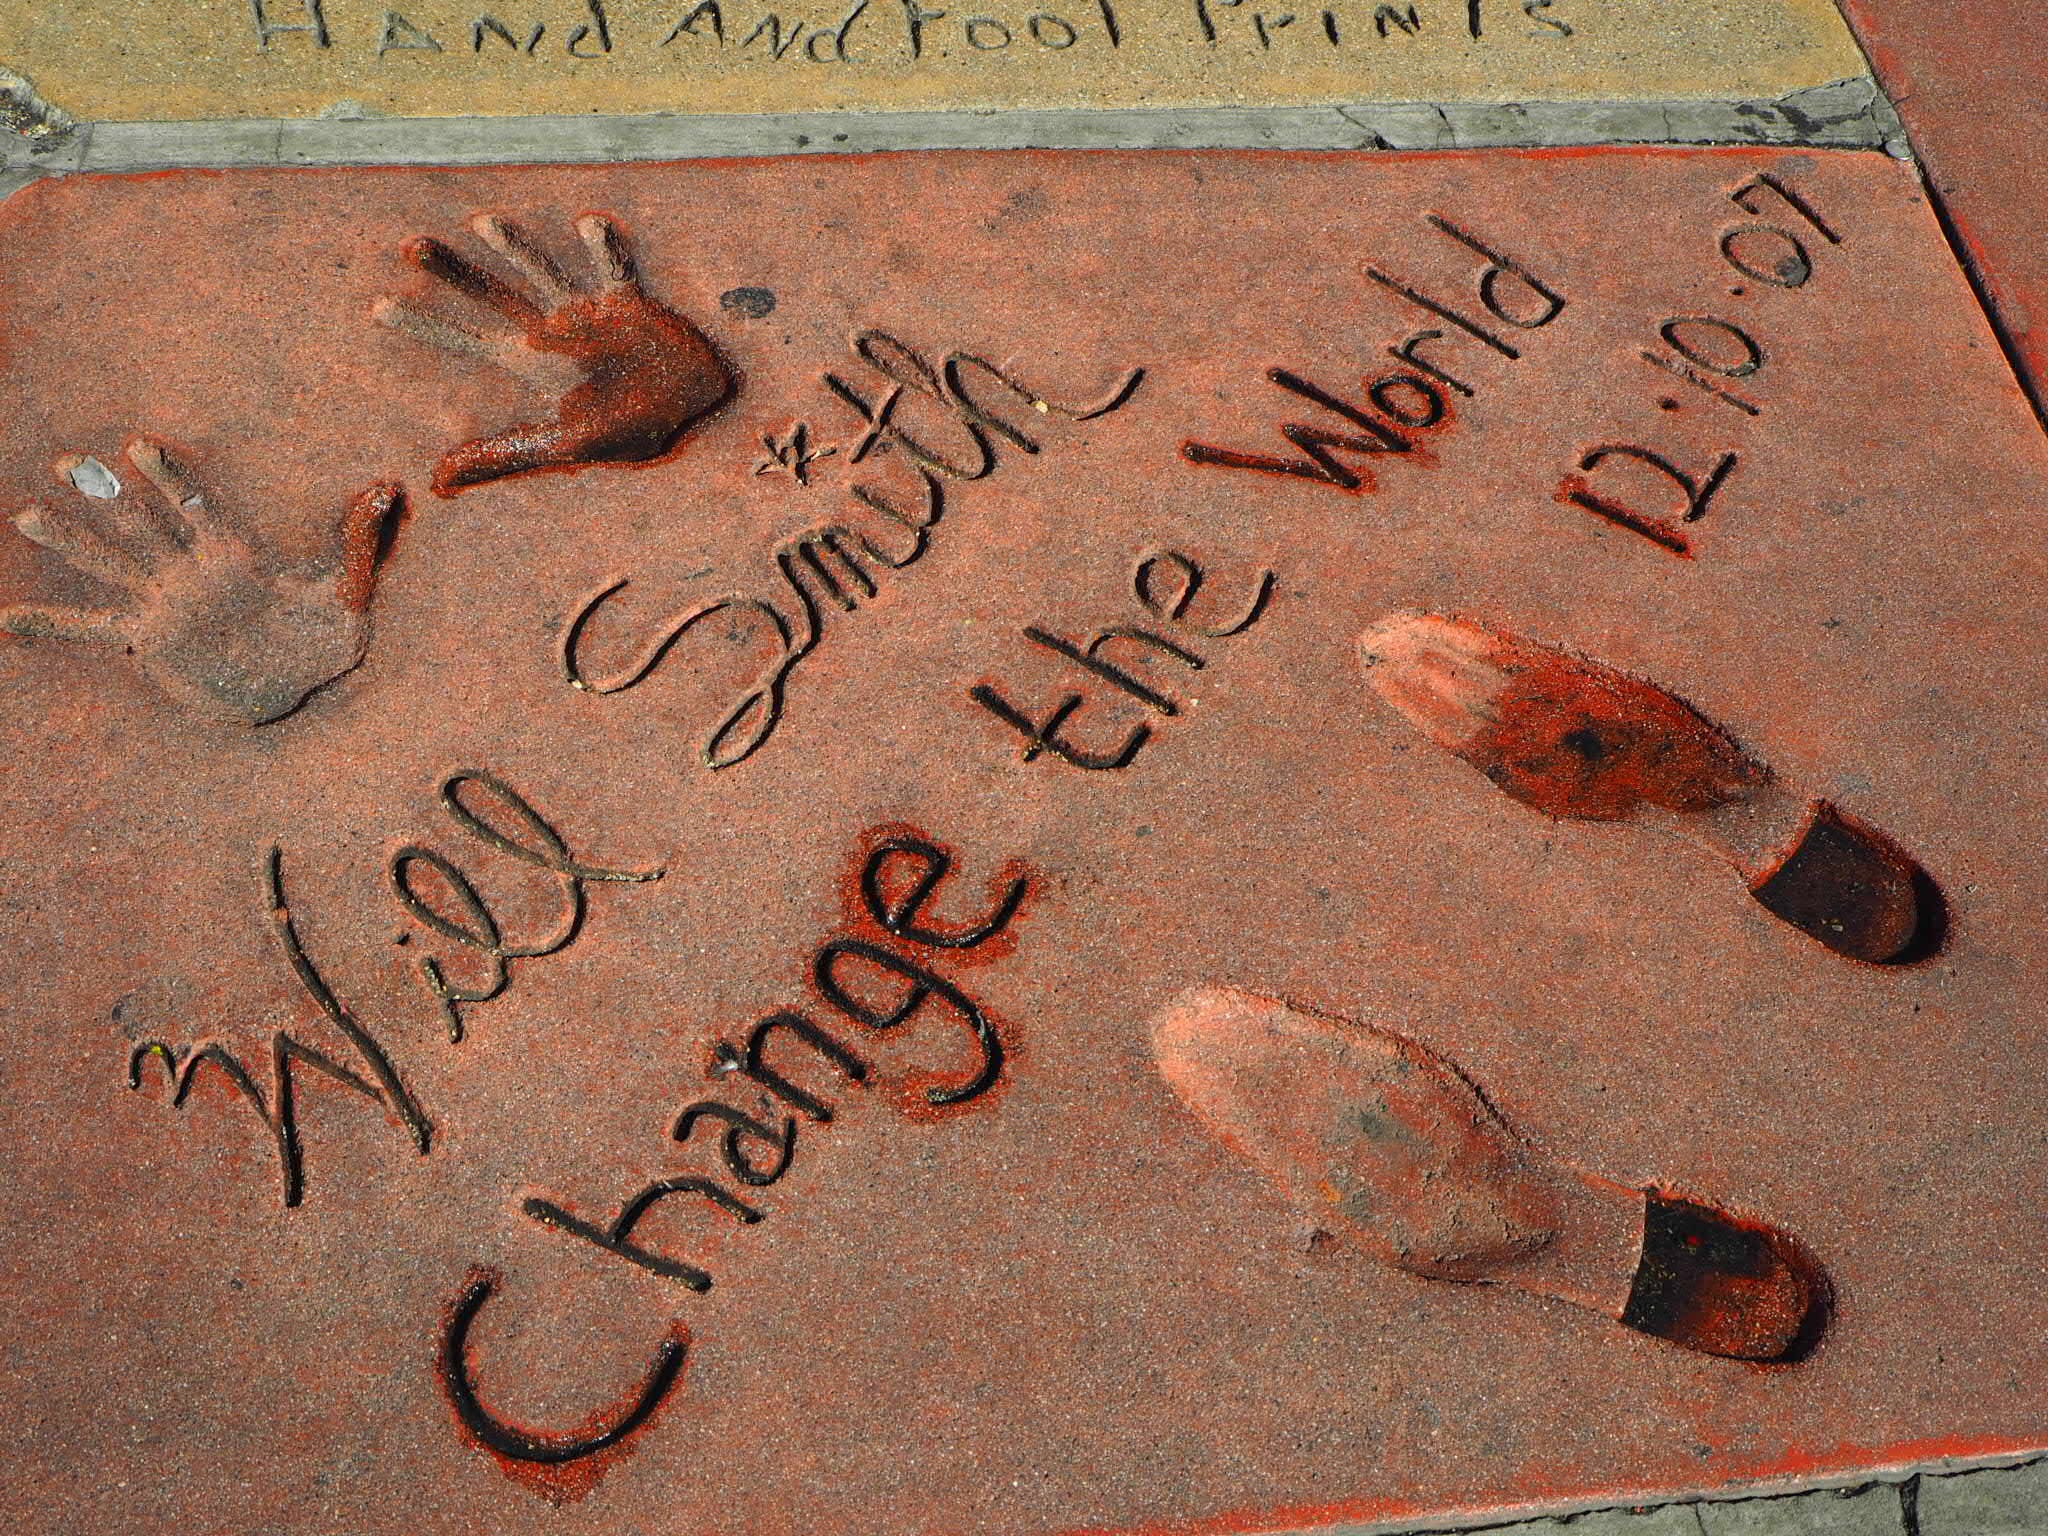 HANd ANd FOOT PriNTS
Will Smith
Change the World
12.10.07